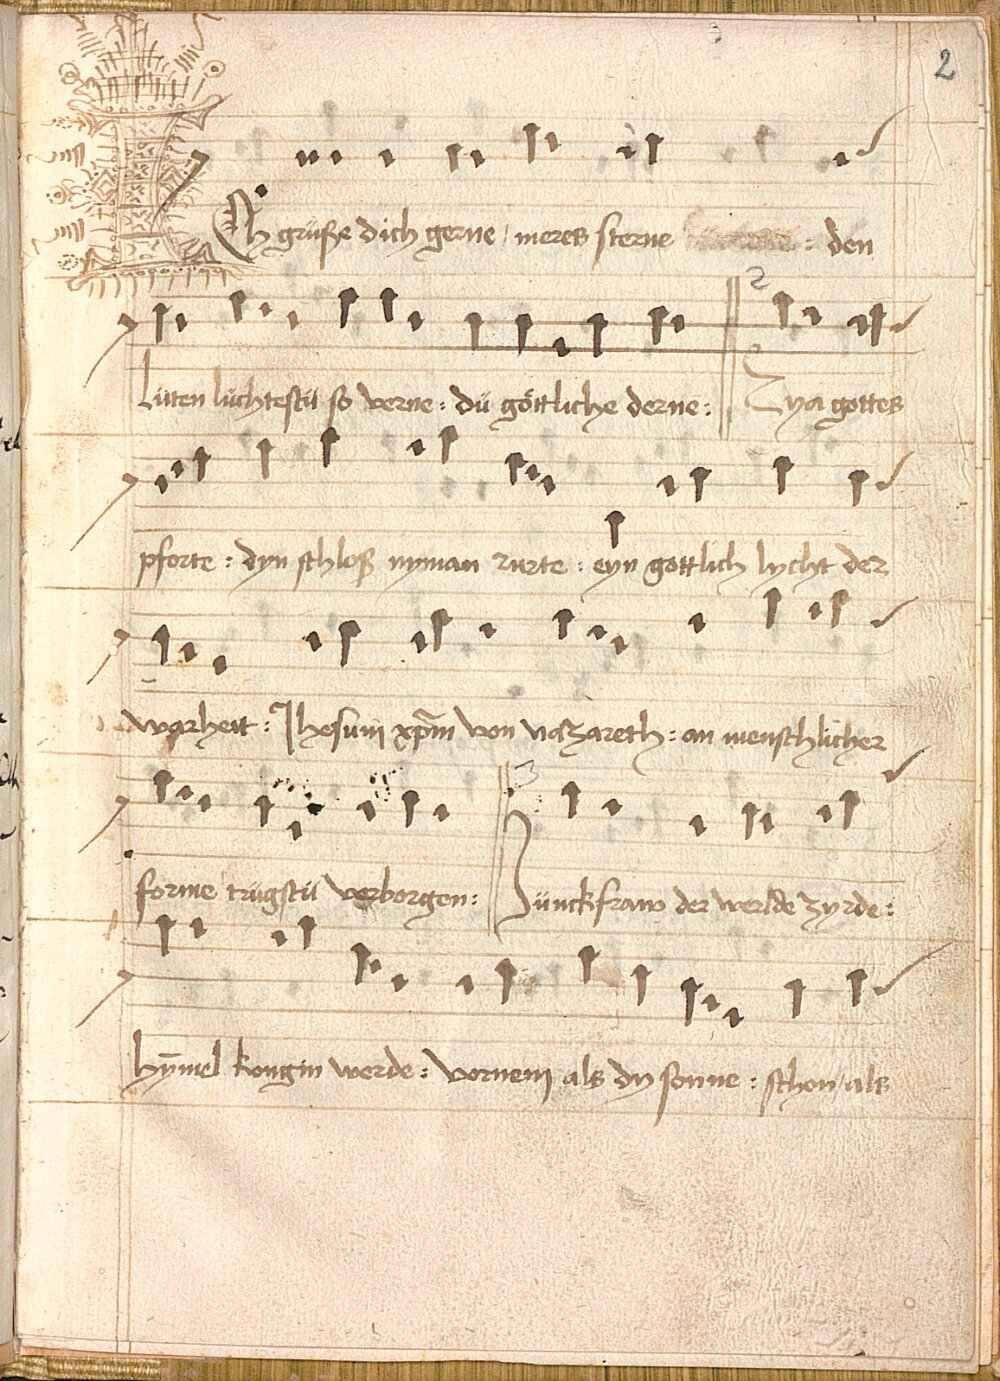 2
Ich grüße dich gerne meres sterne : den
2
lüten lüchtestü so verne : dü göttliche derne : Zya gottes
pforte : dyn schloß nyman rurte : eyn gottlich lycht der
warheit : Jhesum xpm̄ von nazareth : an menschlicher
3
forme trügstü verborgen : Jünckfraw der werlde zyrde :
hȳmel kongin werde : vornem als dy sonne : schon als